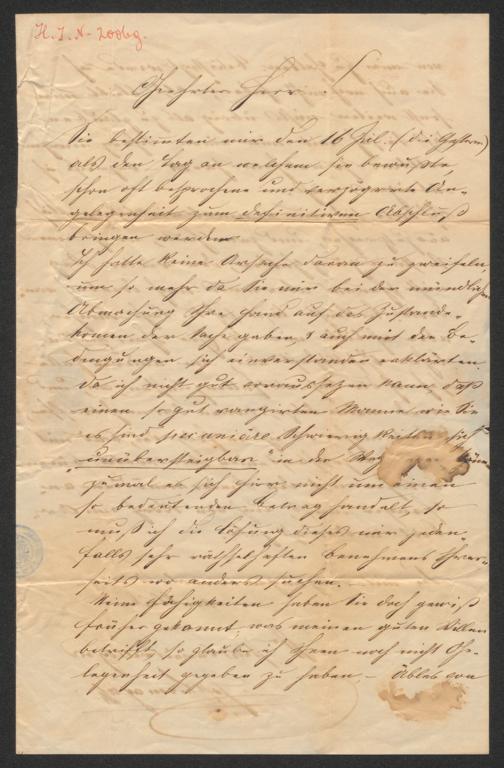 H. I. N- 20069.
Geehrter Herr!
Sie bestimten mir den 16 Juli. (die Gestern)
als den Tag an welchem sie bewußte,
schon oft besprochene und verzögerte An-
gelegenheit zum definitiven Abschluß
bringen werden.
Ich hatte keine Ursache daran zu zweifeln,
um so mehr da Sie mir bei der mündlichen
Abmachung Ihre Hand auf das Zustande-
komen der Sache gaben & auch mit den Be-
dingungen sich einverstanden erklärten.
Da ich nicht gut voraussetzen kann daß
einem so gut rangirten Manne wie Sie
es sind pecuniäre Schwierigkeiten sich
"unübersteigbar" in den Weg
zumal es sich hier nicht um einen
so bedeutenden Betrag handelt, so
muß ich die Lösung dieses mir jeden-
falls sehr räthselhaften Benehmens Ihrer-
seits wo anders suchen.
Meine Fähigkeiten haben Sie doch gewiß
früher gekannt, was meinen guten Willen
betrifft so glaube ich Ihnen noch nicht Ge-
legenheit gegeben zu haben, – Übles von